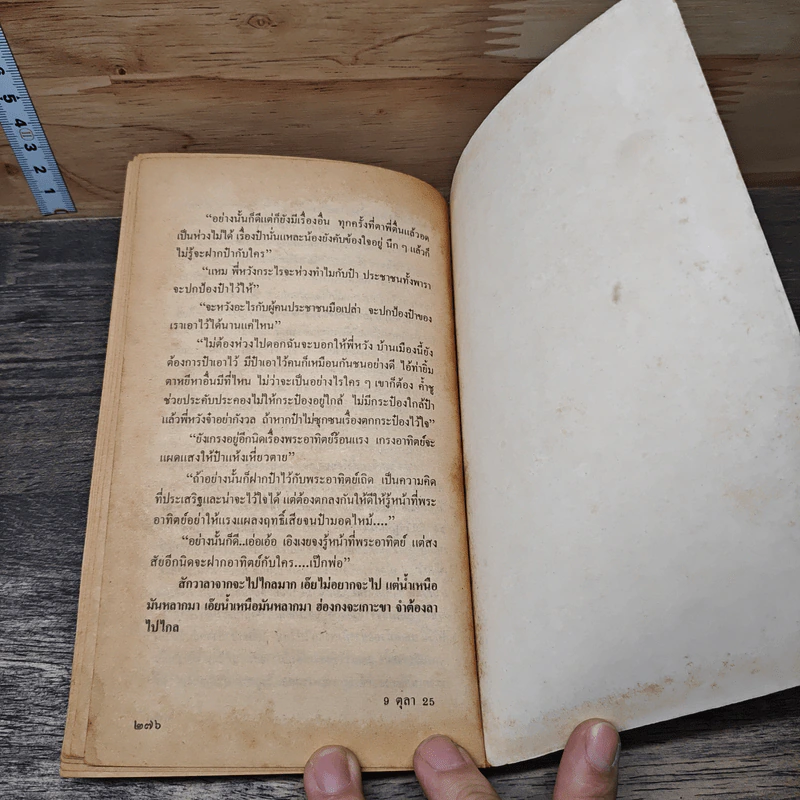 5 4 3 2 1
“อย่างนั้นก็ดีแต่ก็ยังมีเรื่องอื่น ทุกครั้งที่ตาพี่ตื่นแล้วอด
เป็นห่วงไม่ได้ เรื่องป๋านั่นแหละน้องยังคับข้องใจอยู่ นึก ๆ แล้วก็
ไม่รู้จะฝากป๋ากับใคร”
“แหม พี่หวังกระไรจะห่วงทำไมกับป๋า ประชาชนทั้งพารา
จะปกป้องป๋าไว้ให้”
“จะหวังอะไรกับผู้คนประชาชนมือเปล่า จะปกป้องป๋าของ
เราเอาไว้ได้นานแค่ไหน”
“ไม่ต้องห่วงไปดอกฉันจะบอกให้พี่หวัง บ้านเมืองนี้ยัง
ต้องการป๋าเอาไว้ มีป๋าเอาไว้คนก็เหมือนกันชนอย่างดี ไอ้ท่ายิ้ม
ตาหยีหาอื่นมีที่ไหน ไม่ว่าจะเป็นอย่างไรใคร ๆ เขาก็ต้อง ค้ำชู
ช่วยประคับประคองไม่ให้กระป๋องอยู่ใกล้ ไม่มีกระป๋องใกล้ป๋า
แล้วพี่หวังจ๋าอย่ากังวล ถ้าหากป๋าไม่ซุกซนเรื่องตกกระป๋องไว้ใจ”
“ยังเกรงอยู่อีกนิดเรื่องพระอาทิตย์ร้อนแรง เกรงอาทิตย์จะ
แผดแสงให้ป๋าแห้งเหี่ยวตาย”
“ถ้าอย่างนั้นก็ฝากป๋าไว้กับพระอาทิตย์เถิด เป็นความคิด
ที่ประเสริฐและน่าจะไว้ใจได้ แต่ต้องตกลงกันให้ดีให้รู้หน้าที่พระ
อาทิตย์อย่าให้แรงแผลงฤทธิ์เสียจนป๋ามอดไหม้....”
“อย่างนั้นก็ดี..เอ่อเอ้อ เอิงเงยจงรู้หน้าที่พระอาทิตย์ แต่สง
สัยอีกนิดจะฝากอาทิตย์กับใคร....เป๊กพ่อ”
สักวาลาจากจะไปไกลมาก เอ๊ยไม่อยากจะไป แต่น้ำเหนือ
มันหลากมา เอ๊ยน้ำเหนือมันหลากมา ฮ่องกงจะเกาะขา จำต้องลา
ไปไกล
9 ตุลา 25
๒๗๖